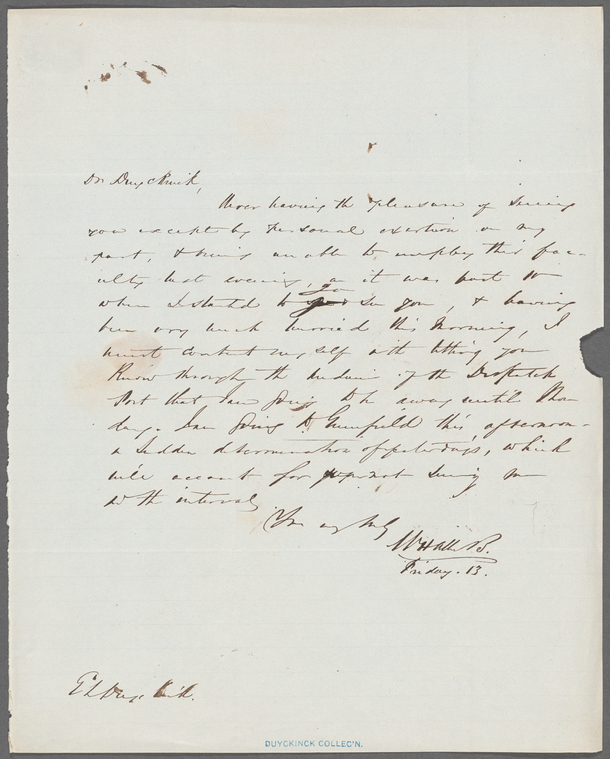 Dr Duyckinck,
Never having the pleasure of seeing
you except by personal exertion on my
part, & being unable to employ this fac-
ulty last evening, as it was past 10
when I started to go see you, & having
been very much hurried this morning, I
must content myself with letting you
know through the medium of the Despatch
Post that I am going to be away until Mon-
day. I am going to Greenfield this afternoon -
a sudden determination of yesterday's, which
will account for my not seeing you
in the interval,
Yours very truly
W H
Friday. 13.
Duyckinck.
DUYCKINCK COLLEC'N.